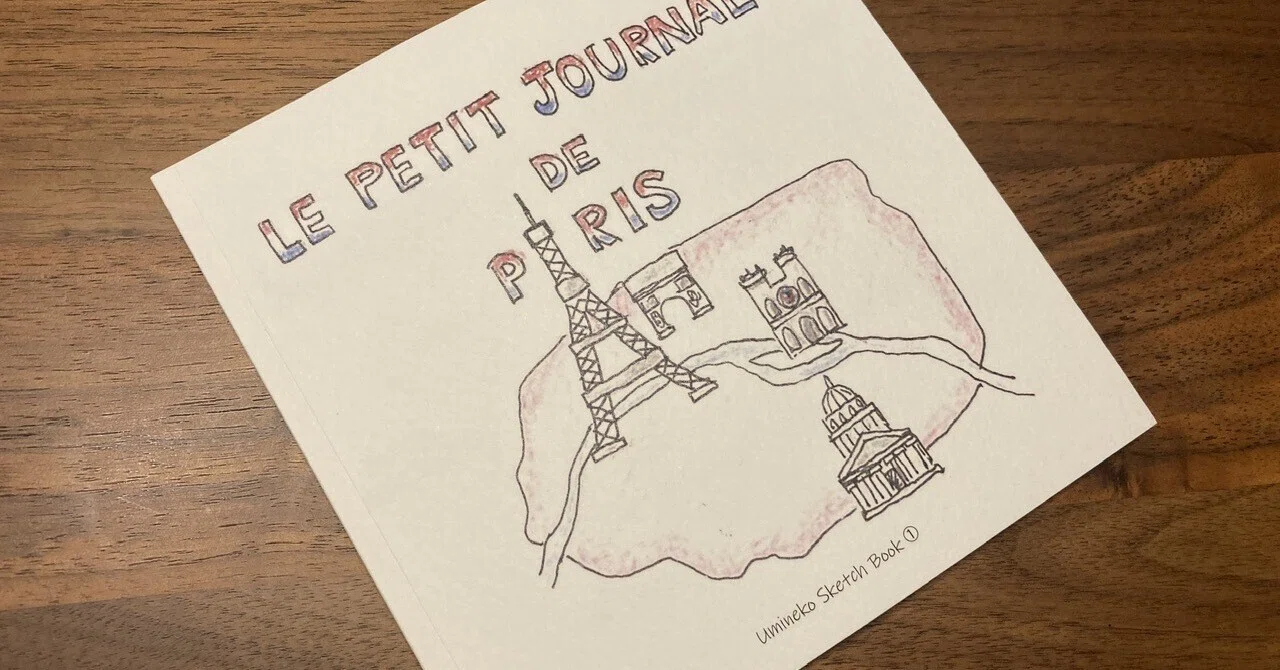 LE PETIT JOURNAL
DE
P RIS
Umineko Sketch Book ①